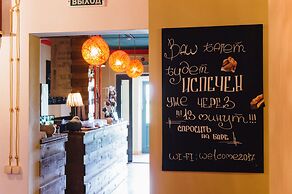 ВЫХОД
Ваш багет
будет
ИСПЕЧЕН
УЖЕ ЧЕРЕЗ
13 минут!!!
СПРОСИТЬ
НА БАРЕ
WI-FI: welcome2017